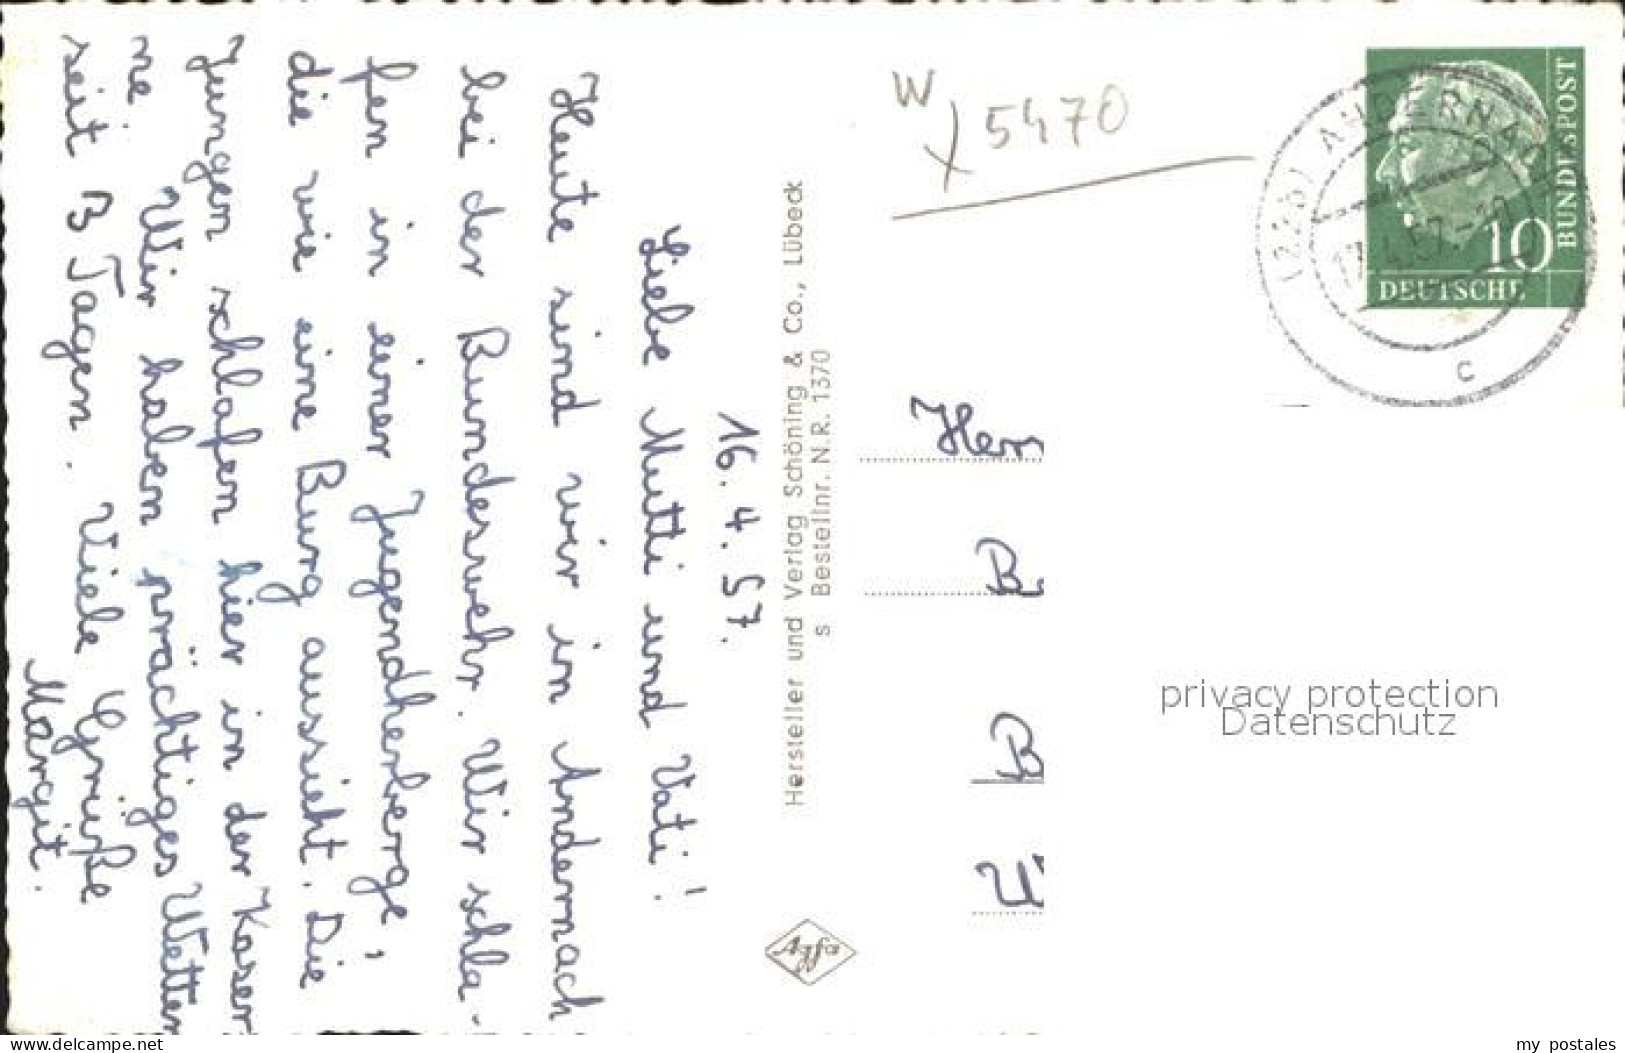 16. 4. 57.
Liebe Mutti und Vati!
Heute sind wir in Andernach
bei der Bundeswehr. Wir schla-
fen in einer Jugendherberge,
die wie eine Burg aussieht. Die
Jungen schlafen hier in der Kaser
ne
Wir haben prächtiges Wetter
seit 3 Tagen. Viele Grüße
Margit.
Hersteller und Verlag Schöning & Co., Lübeck
s Bestellnr. N.R. 1370
Agfa
W
5470
ANDERNA
17.4.57.-10
c
10
BUNDESPOST
DEUTSCHE
Herrn
B.
B
Ü
privacy protection
Datenschutz
www.delcampe.net
my_postales